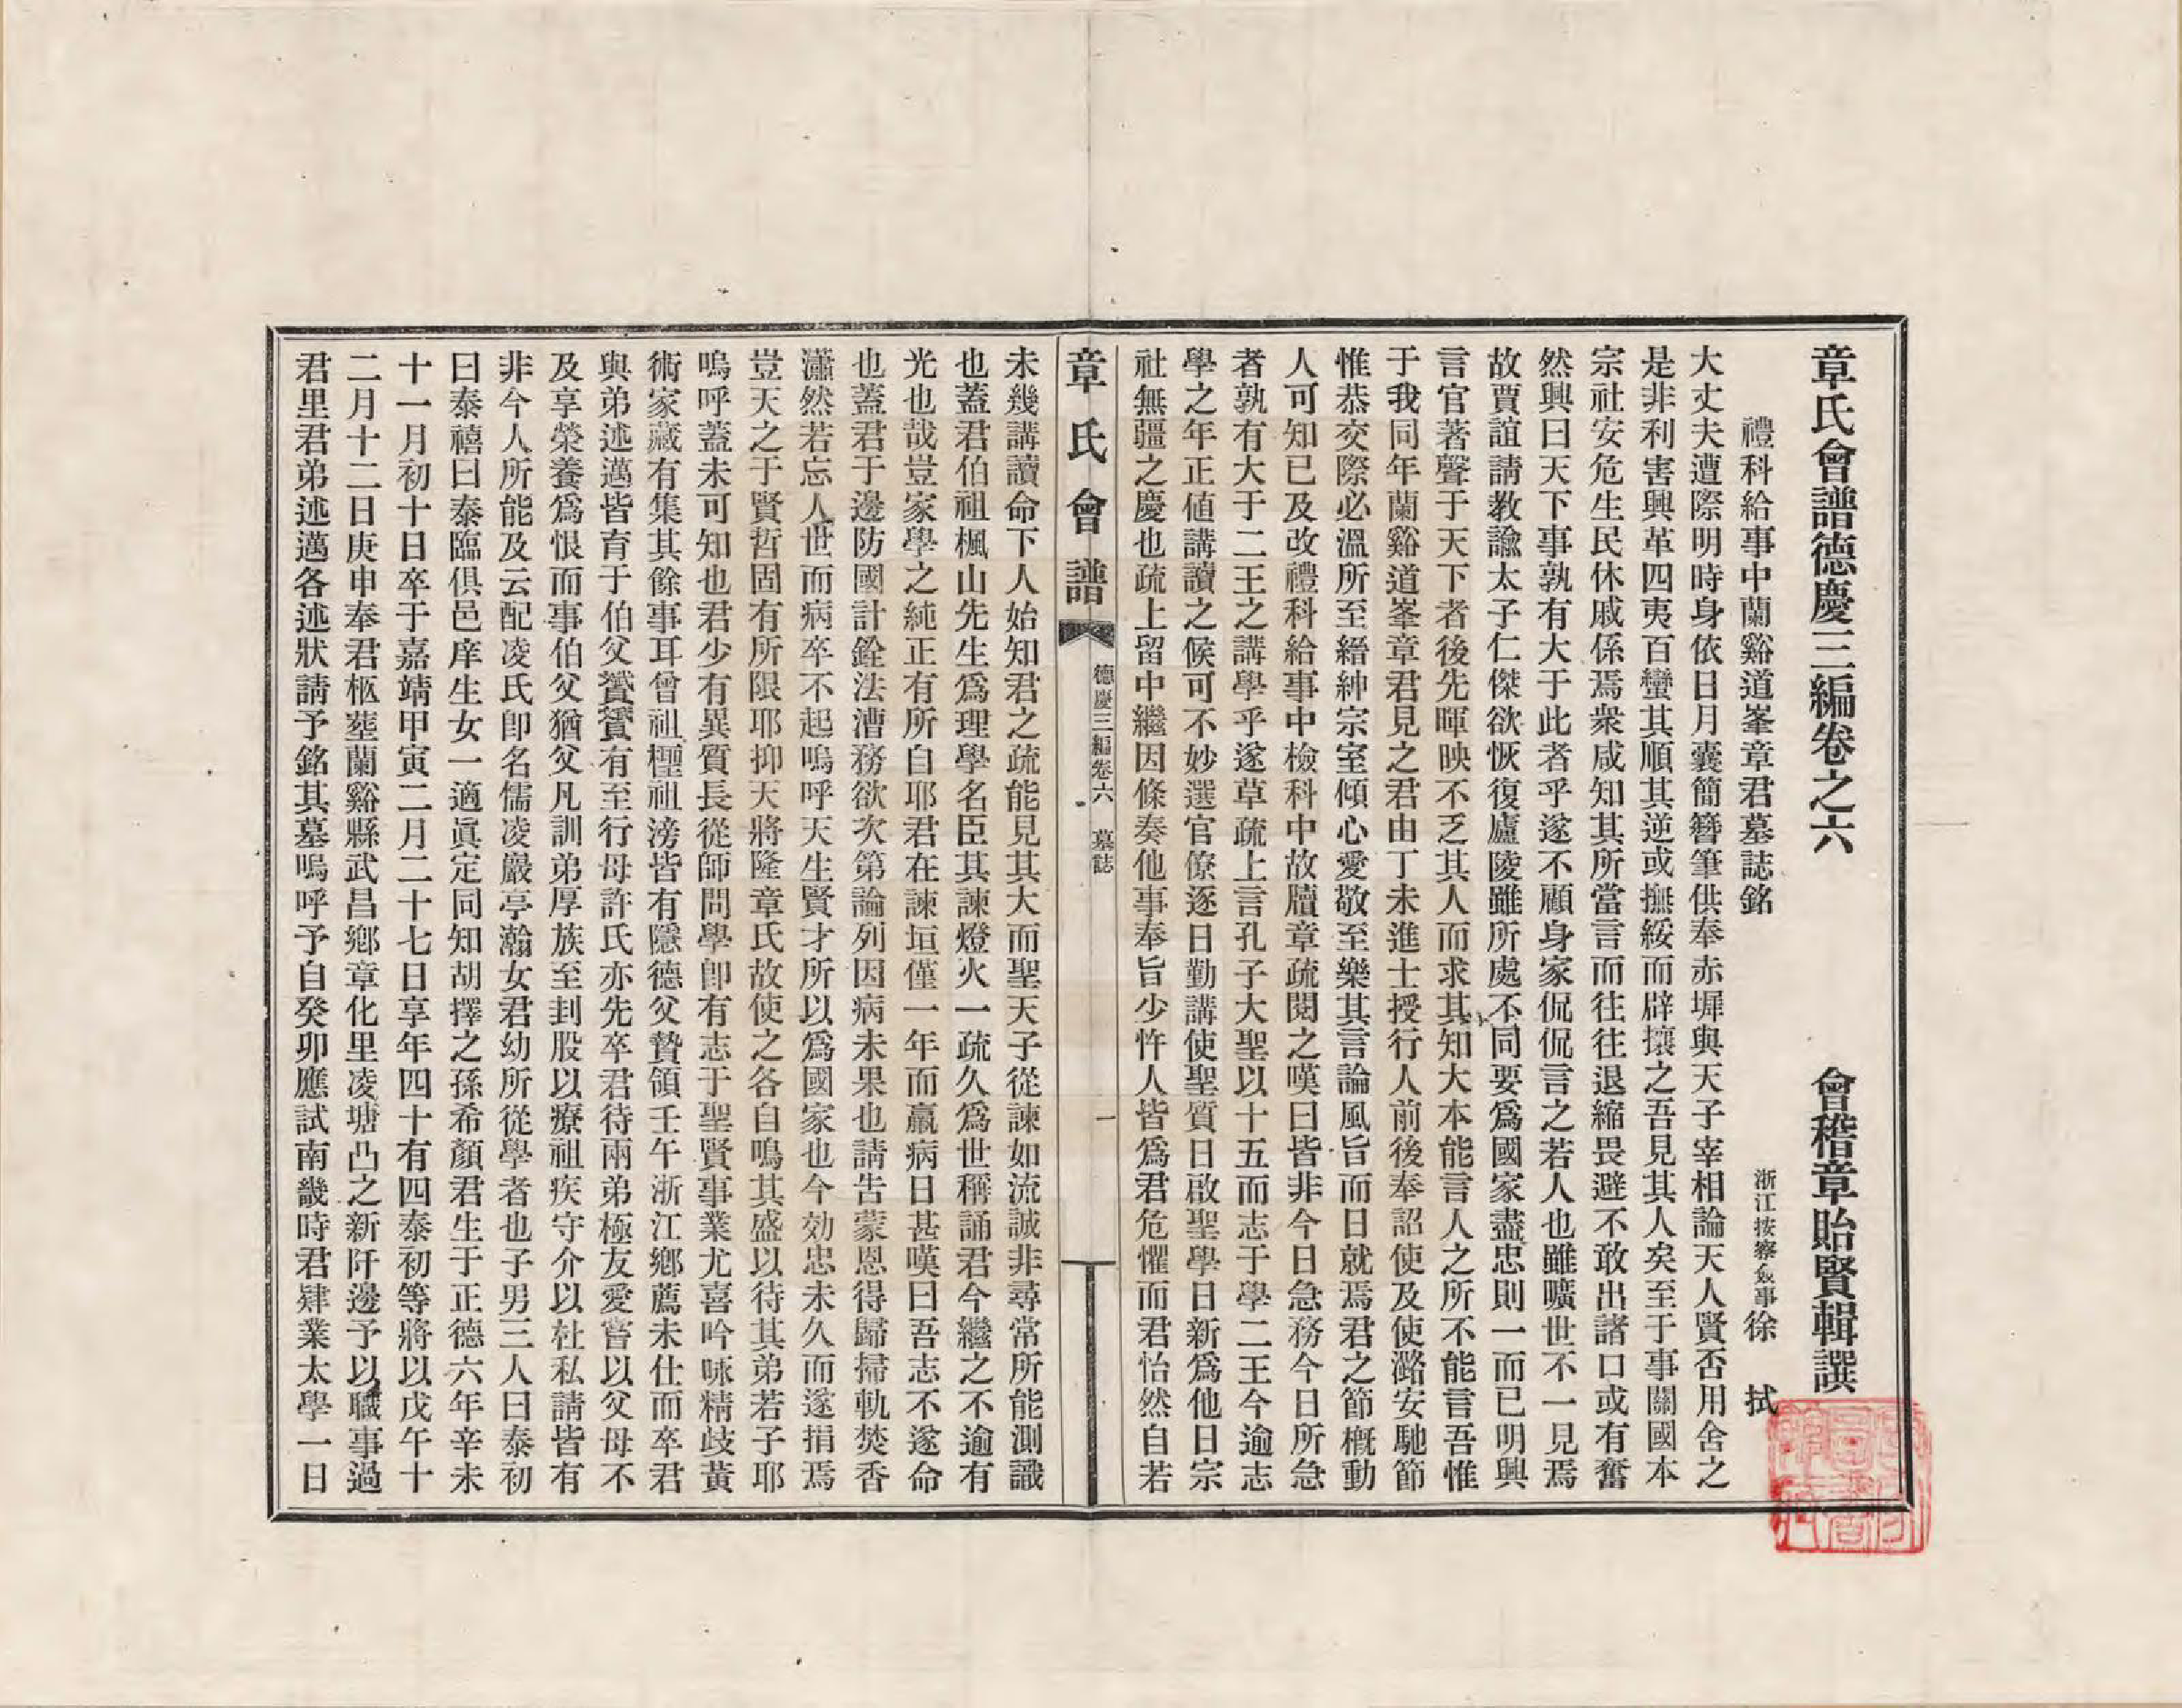 章氏會譜德慶三編卷之六
會稽章貽賢輯譔
禮科給事中蘭谿道峯章君墓誌銘
浙江按察僉事徐 拭
大丈夫遭際明時身依日月囊簡簪筆供奉赤墀與天子宰相論天人賢否用舍之
是非利害興革四夷百蠻其順其逆或撫綏而辟攘之吾見其人矣至于事關國本
宗社安危生民休戚係焉衆咸知其所當言而往往退縮畏避不敢出諸口或有奮
然興曰天下事孰有大于此者乎遂不顧身家侃侃言之若人也雖曠世不一見焉
故賈誼請教諭太子仁傑欲恢復廬陵雖所處不同要爲國家盡忠則一而已明興
言官著聲于天下者後先暉映不乏其人而求其知大本能言人之所不能言吾惟
于我同年蘭谿道峯章君見之君由丁未進士授行人前後奉詔使及使潞安馳節
惟恭交際必溫所至縉紳宗室傾心愛敬至樂其言論風旨而日就焉君之節概動
人可知已及改禮科給事中檢科中故牘章疏閱之嘆曰皆非今日急務今日所急
者孰有大于二王之講學乎遂草疏上言孔子大聖以十五而志于學二王今逾志
學之年正値講讀之候可不妙選官僚逐日勤講使聖質日啟聖學日新爲他日宗
社無疆之慶也疏上留中繼因條奏他事奉旨少忤人皆爲君危懼而君怡然自若
章氏會譜
德慶三編卷六 墓誌
一
未幾講讀命下人始知君之疏能見其大而聖天子從諫如流誠非尋常所能測識
也蓋君伯祖楓山先生爲理學名臣其諫燈火一疏久爲世稱誦君今繼之不逾有
光也哉豈家學之純正有所自耶君在諫垣僅一年而羸病日甚嘆曰吾志不遂命
也蓋君于邊防國計銓法漕務欲次第論列因病未果也請告蒙恩得歸掃軌焚香
瀟然若忘人世而病卒不起嗚呼天生賢才所以爲國家也今効忠未久而遂捐焉
豈天之于賢哲固有所限耶抑天將隆章氏故使之各自鳴其盛以待其弟若子耶
嗚呼蓋未可知也君少有異質長從師問學卽有志于聖賢事業尤喜吟咏精歧黃
術家藏有集其餘事耳曾祖㮙祖滂皆有隱德父贄領壬午浙江鄉薦未仕而卒君
與弟述邁皆育于伯父贇贇有至行母許氏亦先卒君待兩弟極友愛嘗以父母不
及享榮養爲恨而事伯父猶父凡訓弟厚族至刲股以療祖疾守介以杜私請皆有
非今人所能及云配凌氏卽名儒凌嚴亭瀚女君幼所從學者也子男三人曰泰初
曰泰禧曰泰臨俱邑庠生女一適眞定同知胡擇之孫希顏君生于正德六年辛未
十一月初十日卒于嘉靖甲寅二月二十七日享年四十有四泰初等將以戊午十
二月十二日庚申奉君柩塟蘭谿縣武昌鄉章化里凌塘凸之新阡邊予以職事過
君里君弟述邁各述狀請予銘其墓嗚呼予自癸卯應試南畿時君肄業太學一日